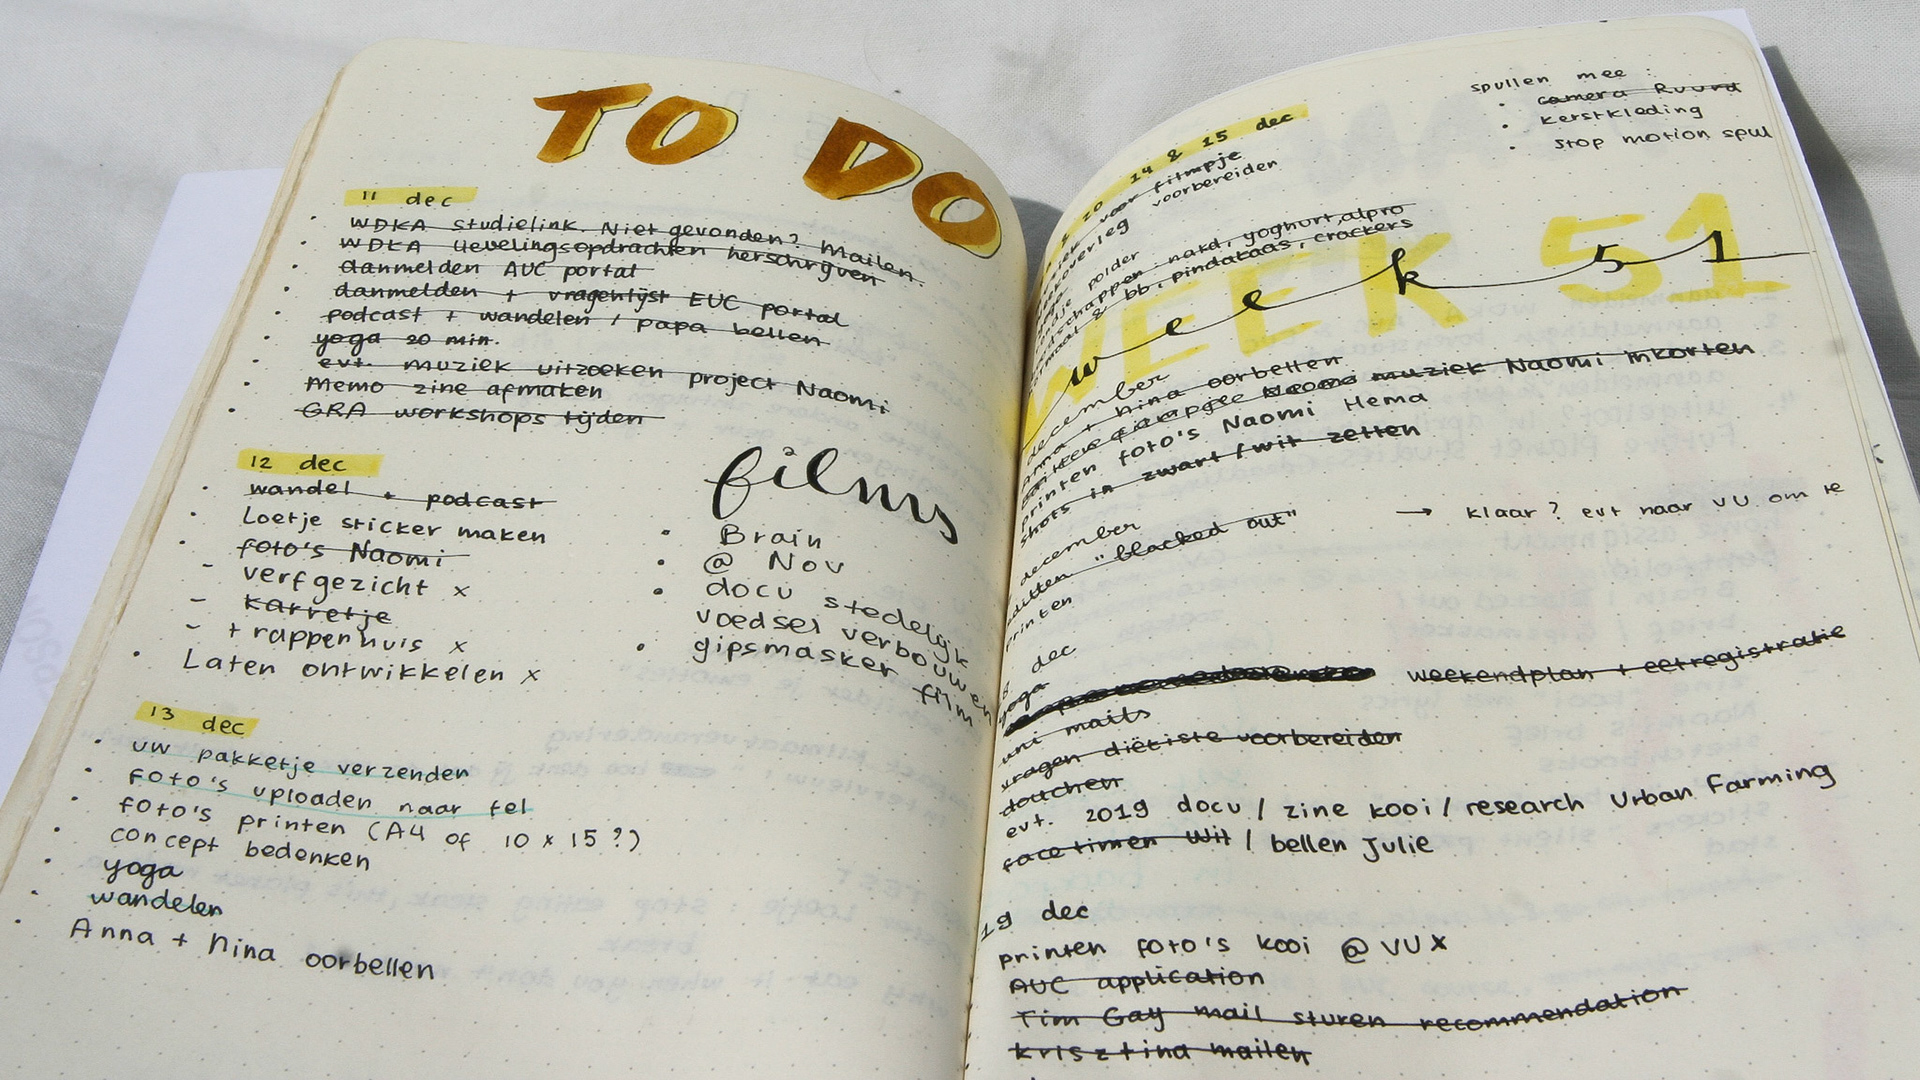 TO DO
11 dec
WDKA studielink. Niet gevonden? Mailen.
WDKA lievelingsopdrachten herschrijven
aanmelden AUC portal
aanmelden + vragenlijst EUC portal
podcast + wandelen / papa bellen
yoga 20 min.
evt. muziek uitzoeken project Naomi
Memo zine afmaken
GRA workshops tijden
12 dec
wandel + podcast
Loetje sticker maken
foto's Naomi
- verf gezicht x
- karretje
- trappenhuis x
Laten ontwikkelen x
films
Brain
@ Nov
docu stedelijk
voedsel verbouwen
gipsmasker film
13 dec
uw pakketje verzenden
foto's uploaden naar tel
foto's printen (A4 of 10 x 15?)
concept bedenken
yoga
wandelen
Anna + Nina oorbellen
spullen mee :
camera Ruurd
kerstkleding
stop motion spul
14 & 15 dec
voor filmpje
voorbereiden
polder
nakd, yoghurt, alpro
& bb, pindakaas, crackers
WEEK 51
week 51
december
Anna + Nina oorbellen
muziek Naomi inkorten
printen foto's Naomi Hema
shots in zwart/wit zetten
december
"blacked out"
→ klaar? evt naar VU om te
printen
dec
yoga
weekendplan + eetregistratie
uni mails
vragen diëtiste voorbereiden
douchen
evt. 2019 docu / zine kooi / research Urban Farming
facetimen Wil / bellen Julie
19 dec
printen foto's kooi @ VU x
AUC application
Tim Gay mail sturen recommendation
krisztina mailen